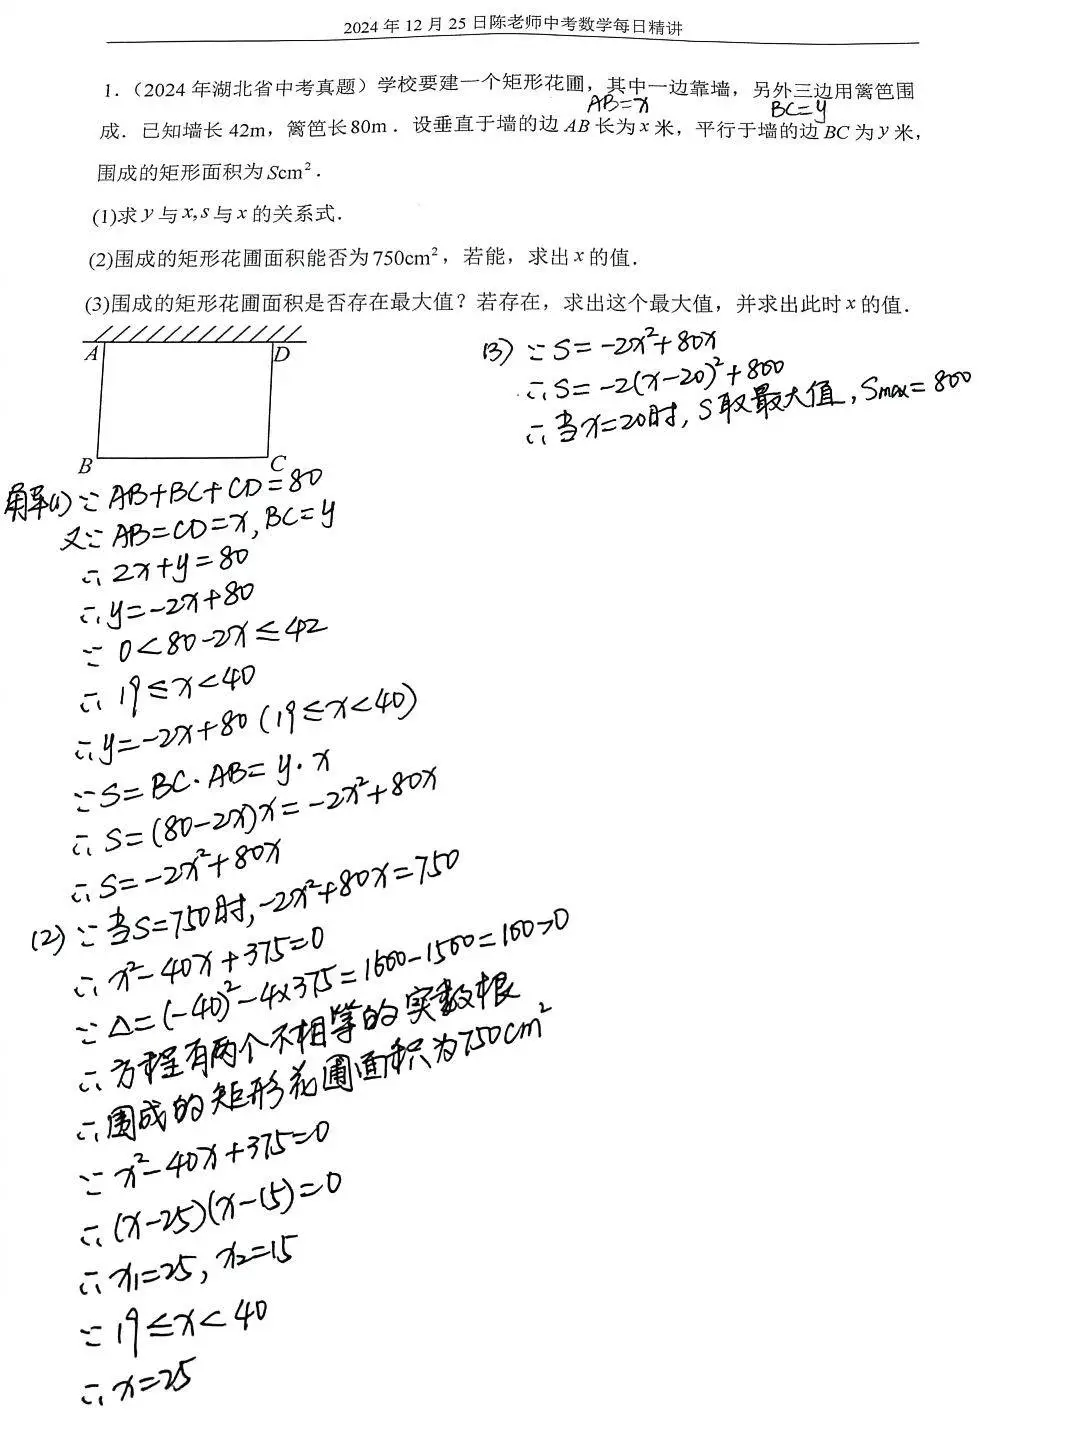 2024年12月25日陈老师中考数学每日精讲
1.（2024年湖北省中考真题）学校要建一个矩形花圃，其中一边靠墙，另外三边用篱笆围
AB=x BC=y
成．已知墙长42m，篱笆长80m．设垂直于墙的边AB长为x米，平行于墙的边BC为y米，
围成的矩形面积为Scm²．
(1)求y与x,s与x的关系式．
(2)围成的矩形花圃面积能否为750cm²，若能，求出x的值．
(3)围成的矩形花圃面积是否存在最大值？若存在，求出这个最大值，并求出此时x的值．
A D
B C
解(1)∵AB+BC+CD=80
又∵AB=CD=x,BC=y
∴2x+y=80
∴y=-2x+80
∵0<80-2x≤42
∴19≤x<40
∴y=-2x+80(19≤x<40)
∵S=BC·AB=y·x
∴S=(80-2x)x=-2x²+80x
∴S=-2x²+80x
(2)∵当S=750时,-2x²+80x=750
∴x²-40x+375=0
∵△=(-40)²-4×375=1600-1500=100>0
∴方程有两个不相等的实数根
∴围成的矩形花圃面积为750cm²
∵x²-40x+375=0
∴(x-25)(x-15)=0
∴x₁=25,x₂=15
∵19≤x<40
∴x=25
(3)∵S=-2x²+80x
∴S=-2(x-20)²+800
∴当x=20时,S取最大值,Smax=800